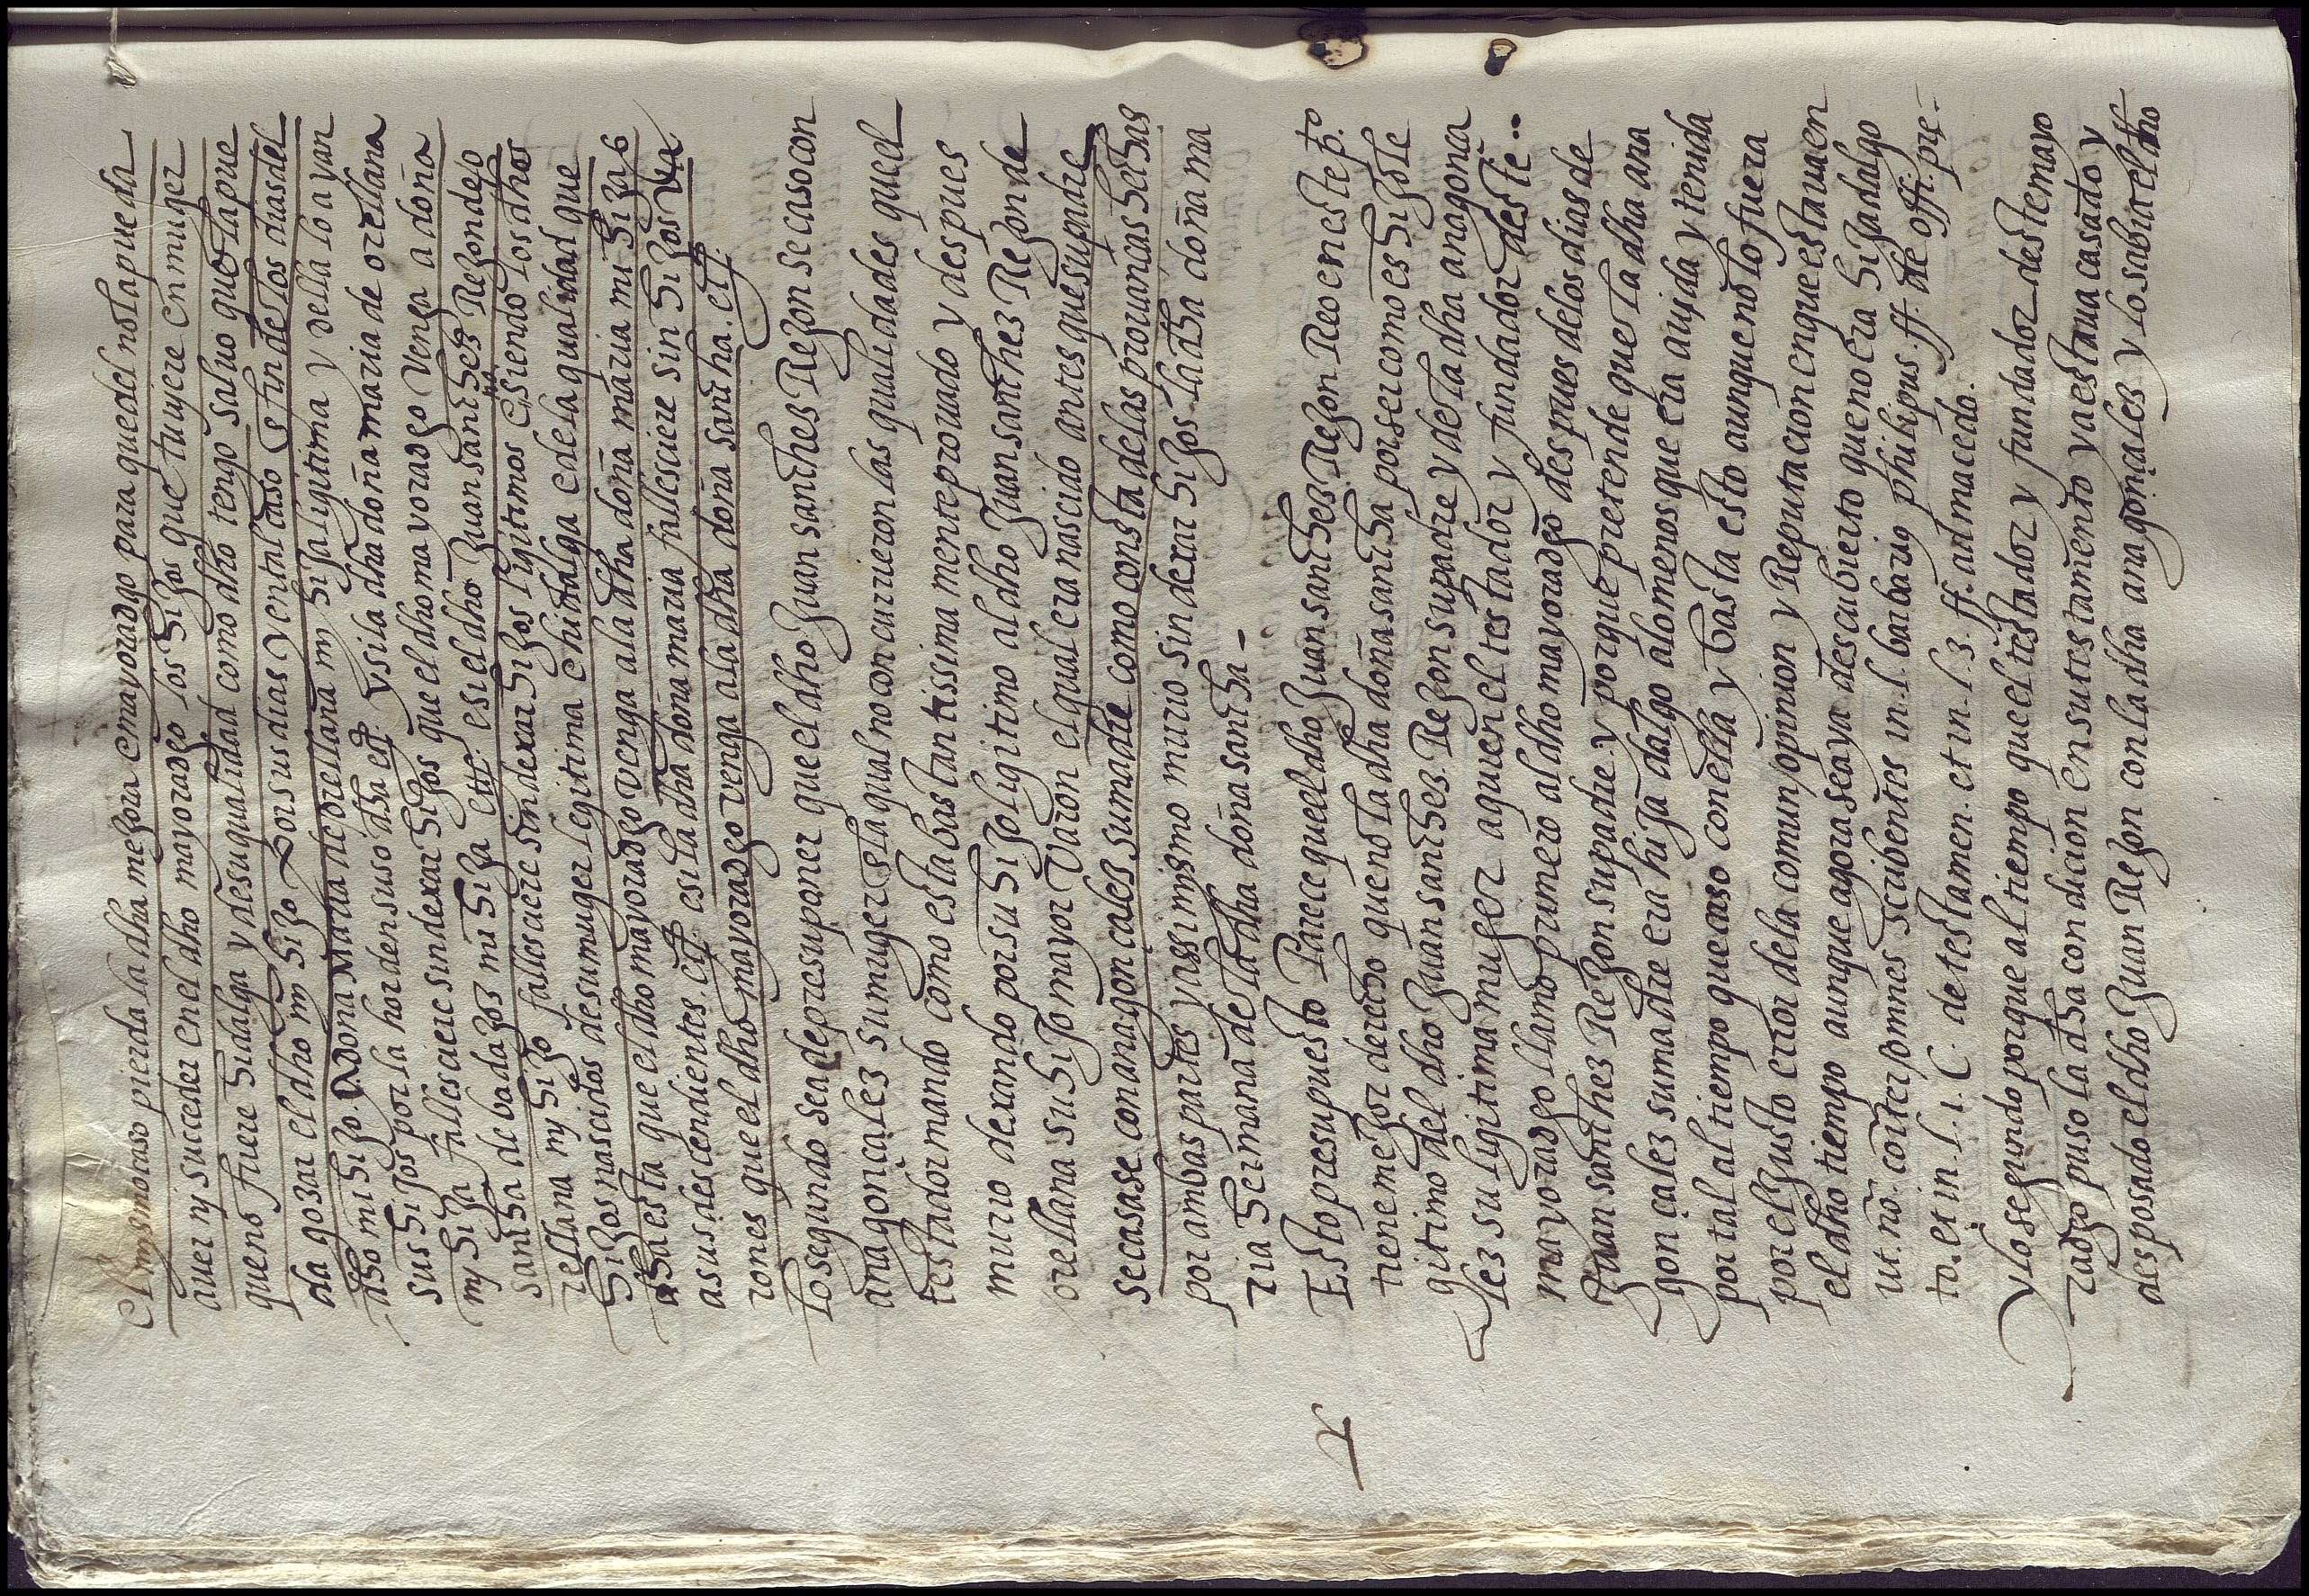 el mysmo caso pierda la dha mejora e mayoradgo para que del no la pueda
auer nj succeder en el dho mayoradgo los hijos que tuujere en muger
que no fuere hidalga y de su qualidad como dho tengo saluo que la pue
da gozar el dho my hijo Por sus dias y en tal caso e fin de los dias del
dho mi hijo. A dona maria de orellana my hija ligitima y della lo ayan
sus hijos por la horden suso dha ett. y si la dha doña maria de orellana
my hija fallesciere sin dexar hijos que el dho mayoradgo venga a doña
sancha de badajoz mi hija ett. e si el dho Juan sanchez Rejon de o
rellana my hijo fallesciere sin dexar hijos ligitimos e siendo los dhos
hijos nascidos de su muger legitima e hidalga e de la qualidad que
dha esta que el dho mayoradgo venga a la dha doña maria mi hija e
a sus descendientes ett. e si la dha doña maria fallesciere sin hijos va
rones que el dho mayoradgo venga a la dha doña sancha. ett.
lo segundo sea de presuponer que el dho Juan sanches Rejon se caso con
ana gonçalez su muger en la qual no concurrieron las qualidades que el
testador mando como esta bastantissimamente prouado y despues
murio dexando por su hijo ligitimo al dho Juan sanchez Rejon de
orellana su hijo mayor Varon el qual era nascido antes que su padre
se casase con ana gonçales su madre como consta de las prouanças hechas
por ambas partes y assi mysmo murio sin dexar hijos la dha doña ma
ria hermana de la dha doña sancha -
Esto presupuesto Parece que el dho Juan sanches Rejon Reo en este pto
tiene mejor derecho que no la dha doña sancha por ser como es hijo le
gitimo del dho Juan sanches Rejon su padre y de la dha ana gonça
les su ligitima muger a quien el testador y fundador deste
mayoradgo llamo primero al dho mayoradgo despues de los dias de
Juan sanchez Rejon su padre. y porque pretende que la dha ana
gonçalez su madre era hija dalgo a lo menos que era aujda y tenida
por tal al tiempo que caso con ella y basta esto aunque no lo fuera
por el Justo error de la comun opinion y Reputacion en que estaua en
el dho tiempo aunque agora se aya descubierto que no era hija dalgo
ut. no. coñter omnes scribentes in. l. barbario philipus ff. de offi. pre-
to. et in. l. 1. C. de testamen. et in. l. 3. ff. ad macedo.
y lo segundo porque al tiempo que el testador y fundador deste mayo
radgo puso la dha condicion en su testamento ya estaua casado y
desposado el dho Juan Rejon con la dha ana gonçalez y lo sabia el dho